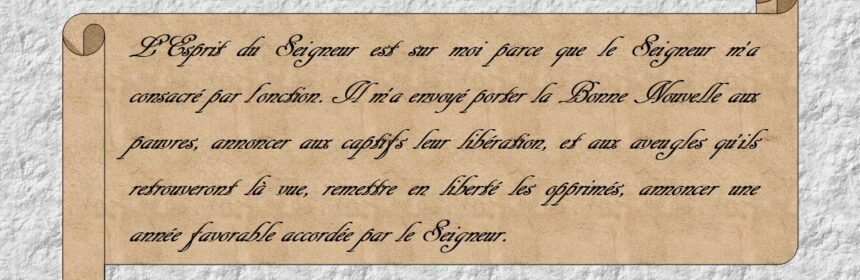 L'Esprit du Seigneur est sur moi parce que le Seigneur m'a
consacré par l'onction. Il m'a envoyé porter la Bonne Nouvelle aux
pauvres, annoncer aux captifs leur libération, et aux aveugles qu'ils
retrouveront là vue, remettre en liberté les opprimés, annoncer une
année favorable accordée par le Seigneur.